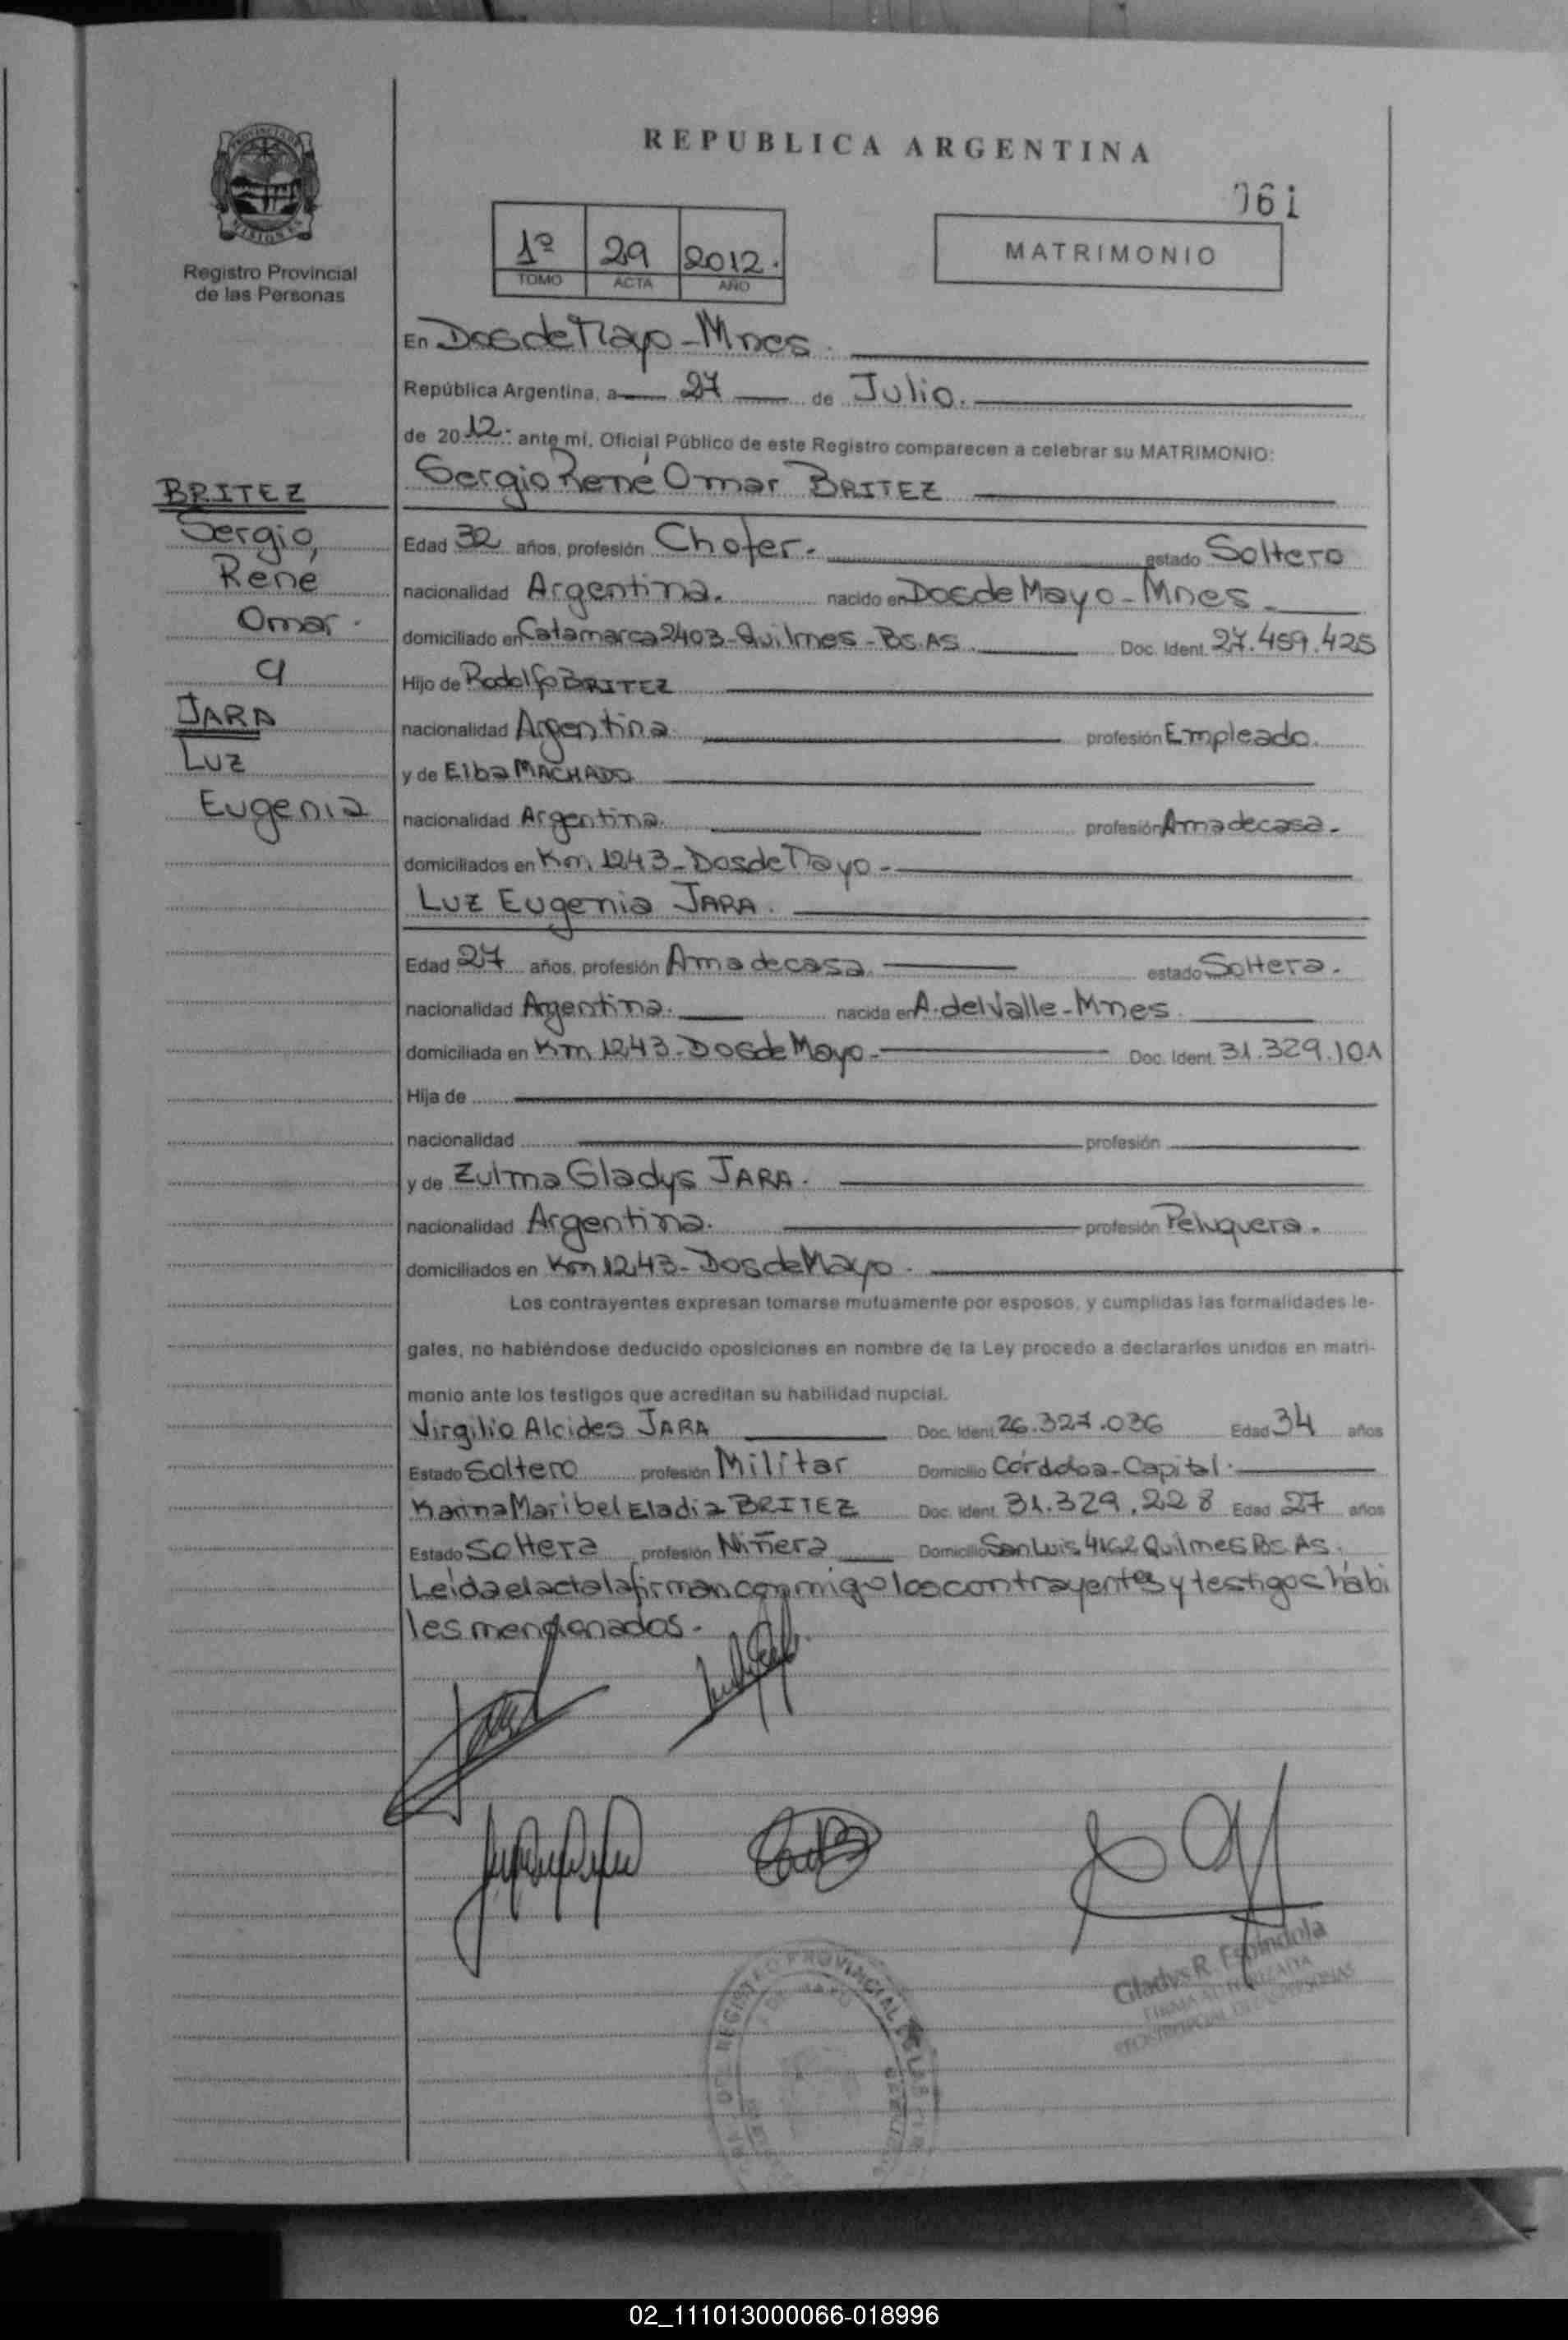 REPUBLICA ARGENTINA
PROVINCIA DE MISIONES
Registro Provincial
de las Personas
1º 29 2012.
TOMO ACTA AÑO
061
MATRIMONIO
En Dos de Mayo - Mnes.
República Argentina, a 27 de Julio.
de 2012.- ante mí, Oficial Público de este Registro comparecen a celebrar su MATRIMONIO:
BRITEZ
Sergio
René
Omar.
c/
JARA
Luz
Eugenia
Sergio René Omar BRITEZ
Edad 32 años, profesión Chofer. estado Soltero
nacionalidad Argentina. nacido en Dos de Mayo - Mnes.
domiciliado en Catamarca 2403 - Quilmes - Bs. As. Doc. Ident. 27.459.425
Hijo de Rodolfo BRITEZ
nacionalidad Argentina. profesión Empleado.
y de Elba MACHADO
nacionalidad Argentina. profesión Ama de casa.
domiciliados en Km 1243 - Dos de Mayo -
Luz Eugenia JARA.
Edad 27 años, profesión Ama de casa. estado Soltera.
nacionalidad Argentina. nacida en A. del Valle - Mnes.
domiciliada en Km 1243 - Dos de Mayo - Doc. Ident. 31.329.101
Hija de
nacionalidad profesión
y de Zulma Gladys JARA.
nacionalidad Argentina. profesión Peluquera.
domiciliados en Km 1243 - Dos de Mayo.
Los contrayentes expresan tomarse mutuamente por esposos, y cumplidas las formalidades le-
gales, no habiéndose deducido oposiciones en nombre de la Ley procedo a declararlos unidos en matri-
monio ante los testigos que acreditan su habilidad nupcial.
Virgilio Alcides JARA Doc. Ident. 26.327.036 Edad 34 años
Estado Soltero profesión Militar Domicilio Córdoba - Capital.
Karina Maribel Eladia BRITEZ Doc. Ident. 31.329.228 Edad 27 años
Estado Soltera profesión Niñera Domicilio San Luis 4162 Quilmes Bs. As.
Leída el acta la firman conmigo los contrayentes y testigos hábi
les mencionados.-
Gladys R. Espindola
FIRMA AUTORIZADA
REG. PROVINCIAL DE LAS PERSONAS
REGISTRO PROVINCIAL DE LAS
02_111013000066-018996